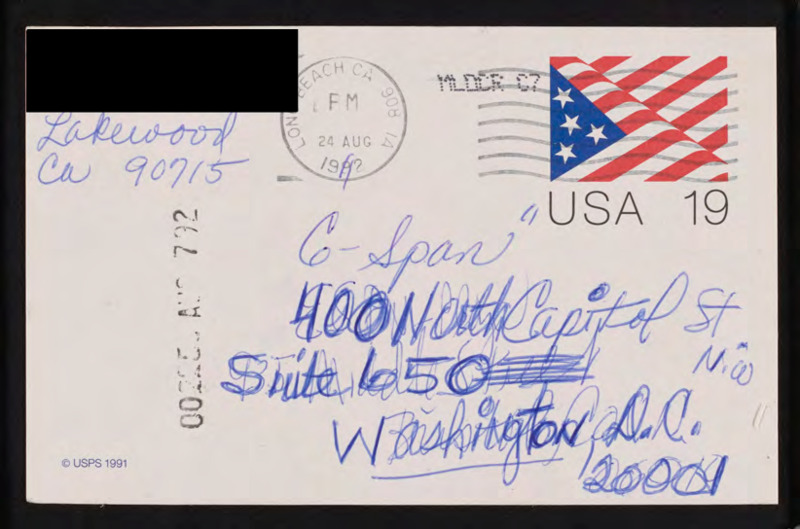 Lakewood
Ca 90715
LONG BEACH CA 908
PM
24 AUG
1992
MLDCR C7
USA 19
C-Span"
400 North Capitol St
N.W
Suite 650
Washington, D.C.
20001
© USPS 1991